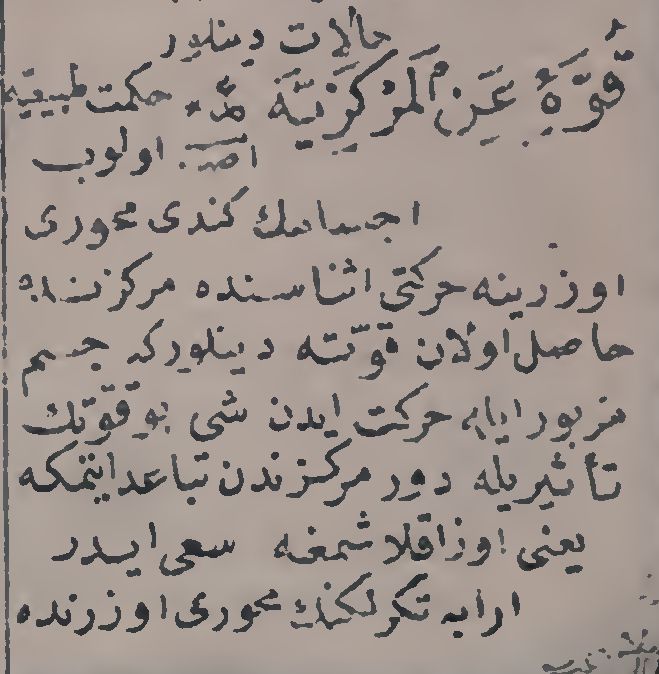 حالات دینلور
قُوَّةُ عَنِ الْمَرْكَزِيَّةَ مذ* حکمت طبیعیه
اصـ. اولوب
اجسامك كندی محوری
اوزرینه حرکتی اثناسنده مرکزنده
حاصل اولان قوّته دینلورکه جسم
مزبور ایله حرکت ایدن شی بو قوّتك
تأثیریله دور مرکزندن تباعد ایتمکه
یعنی اوزاقلاشمغه سعی ایدر
ارابه تکرلکنك محوری اوزرنده